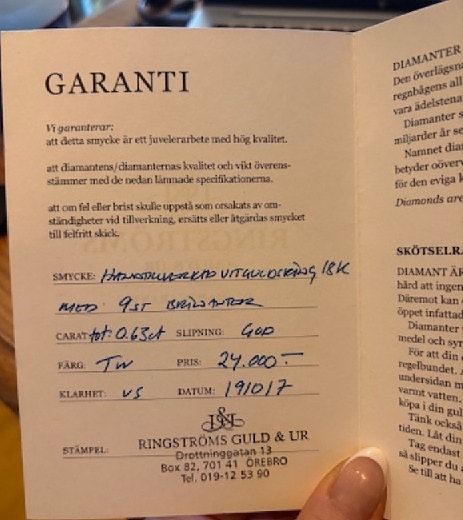 GARANTI
Vi garanterar:
att detta smycke är ett juvelerarbete med hög kvalitet.
att diamantens/diamanternas kvalitet och vikt överens-
stämmer med de nedan lämnade specifikationerna.
att om fel eller brist skulle uppstå som orsakats av om-
ständigheter vid tillverkning, ersätts eller åtgärdas smycket
till felfritt skick.
SMYCKE: HANDTILLVERKAD VITGULDSRING 18K
MED 9ST BRILJANTER
CARAT: tot: 0.63ct SLIPNING: GOD
FÄRG: TW PRIS: 24.000:-
KLARHET: VS DATUM: 191017
STÄMPEL:
RINGSTRÖMS GULD & UR
Drottninggatan 13
Box 82, 701 41 ÖREBRO
Tel. 019-12 53 90
DIAMANTER
Den överlägsna
regnbågens all
vara ädelstena
Diamanter s
miljarder år se
Namnet dia
betyder oöverv
för den eviga k
Diamonds are
SKÖTSELRÅ
DIAMANT ÄR
hård att ingen
Däremot kan
öppet infattad
Diamanter
medel och syr
För att din
regelbundet. A
undersidan m
varmt vatten.
köpa i din gul
Tänk också
tiden. Låt din
Tag endast
så slipper du
Se till att ha